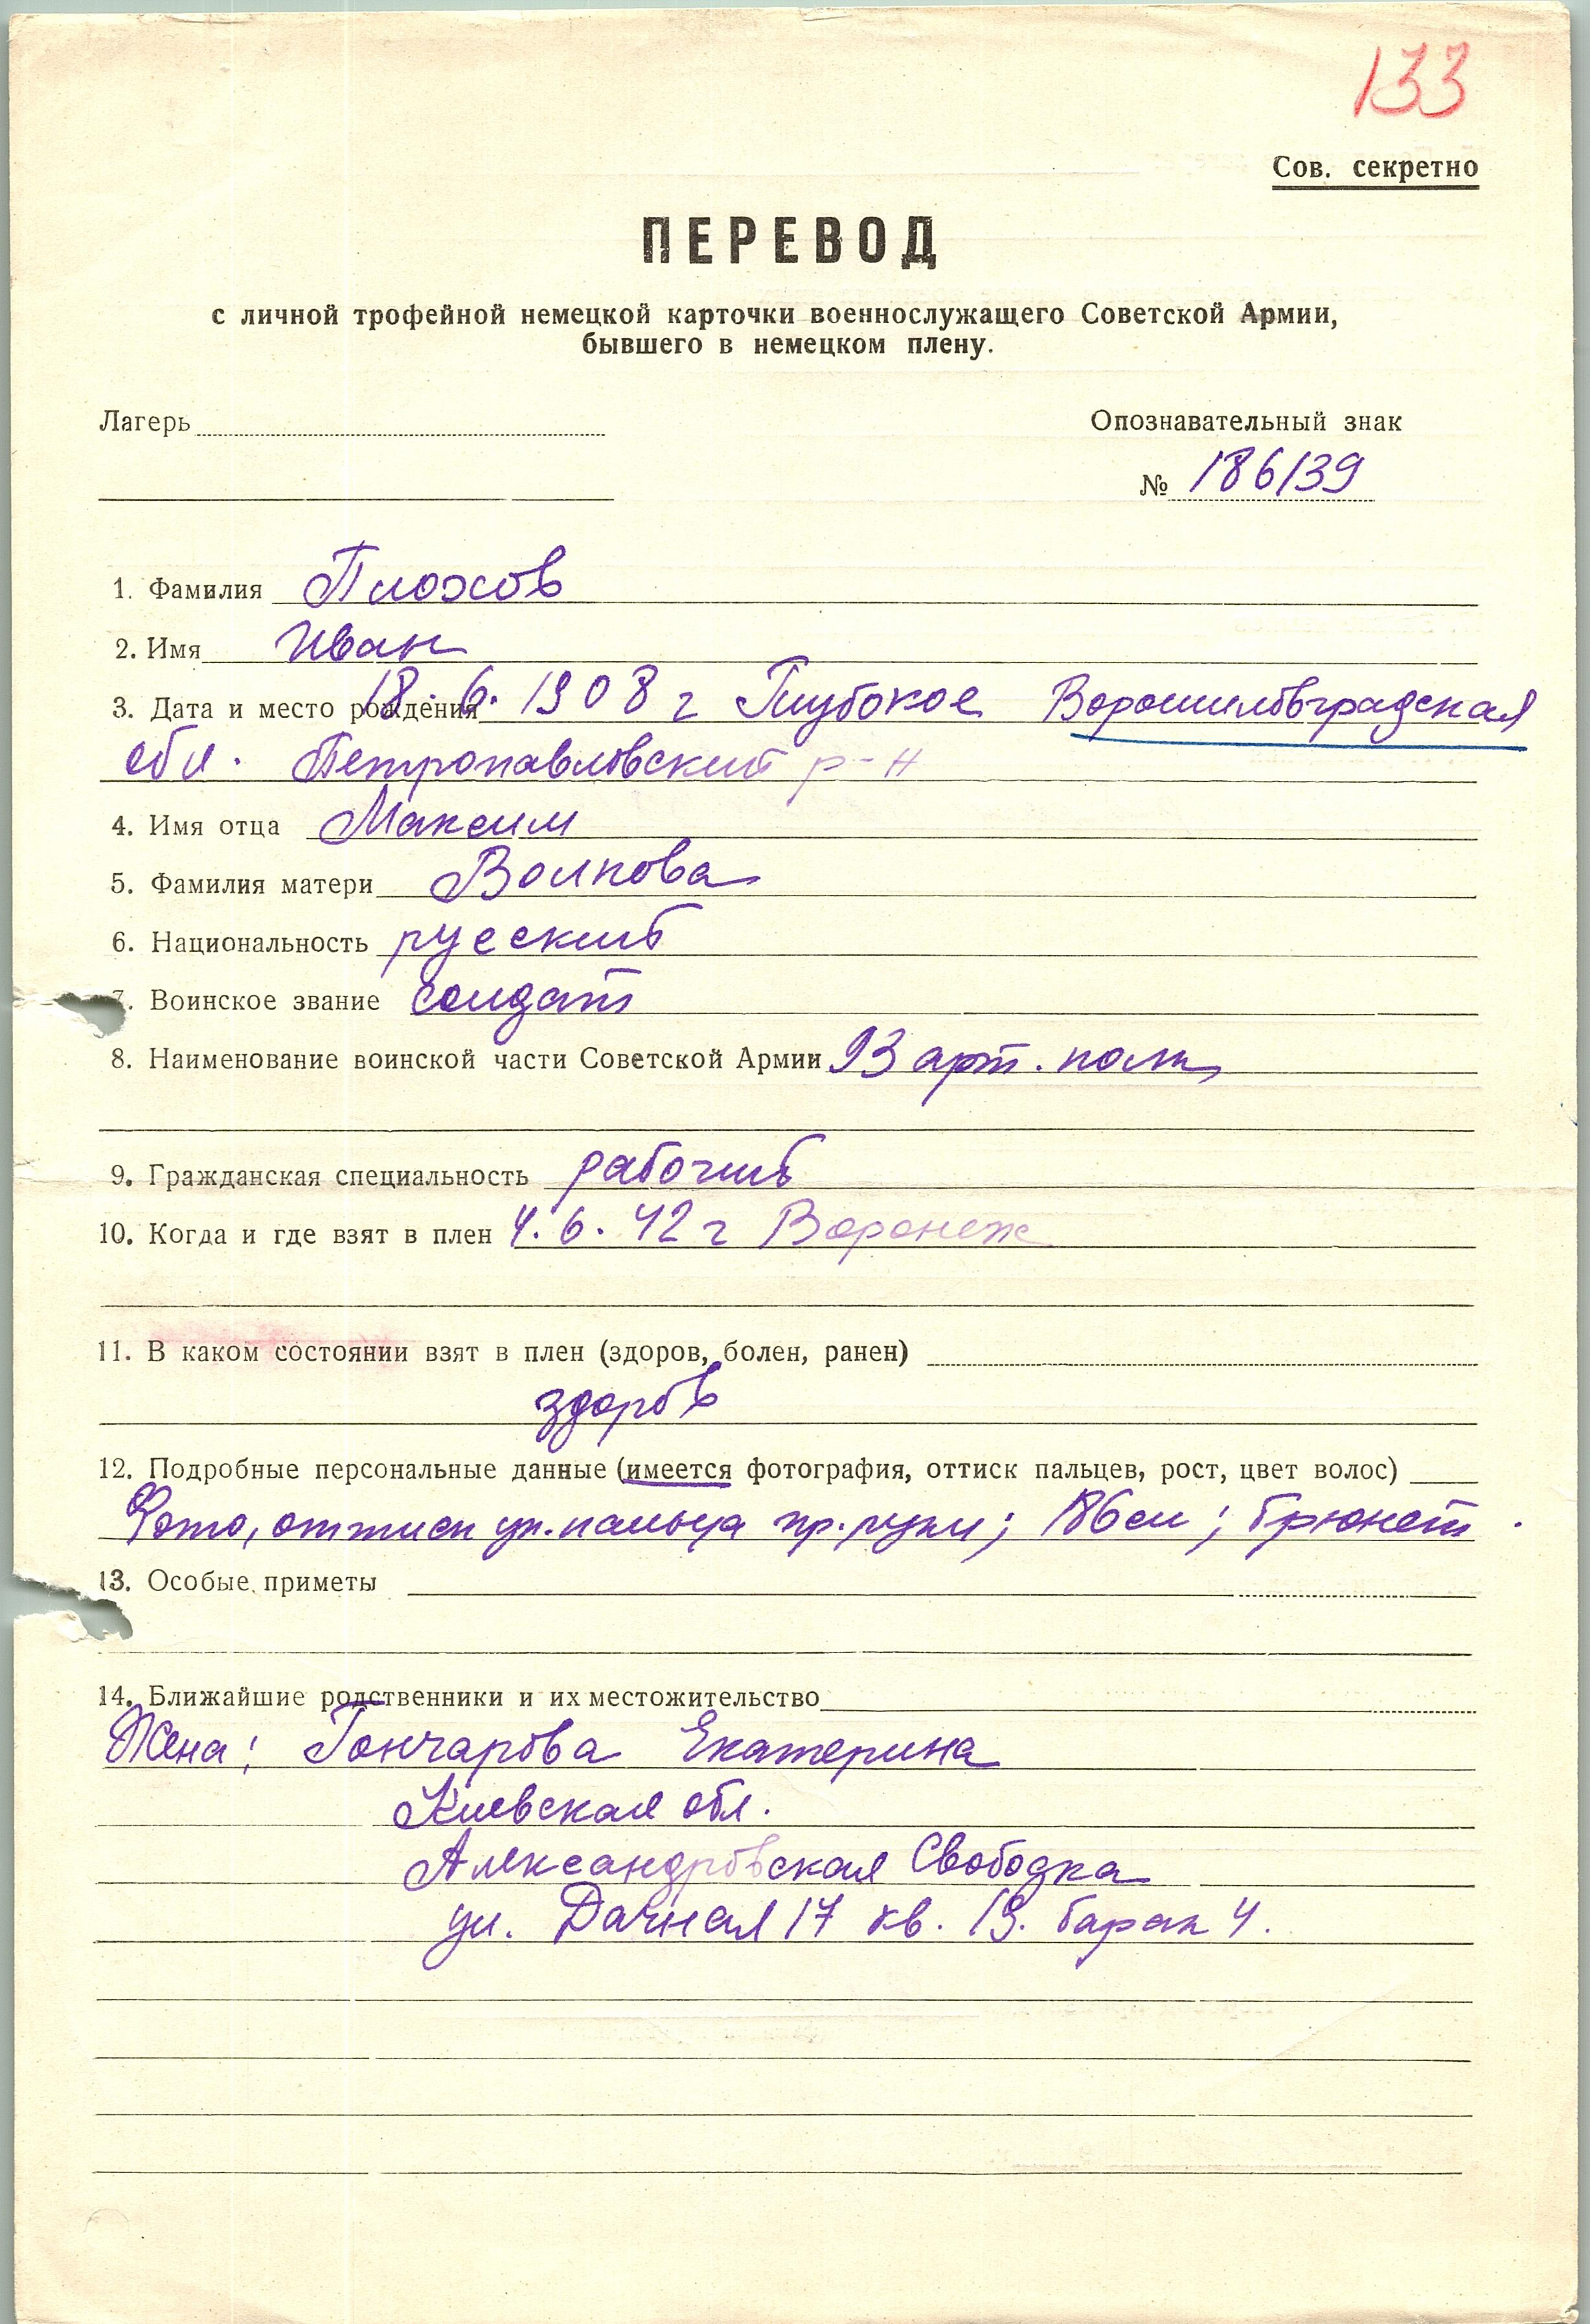 133
Сов. секретно
ПЕРЕВОД
с личной трофейной немецкой карточки военнослужащего Советской Армии,
бывшего в немецком плену.
Лагерь
Опознавательный знак
№ 186139
1. Фамилия Плохов
2. Имя Иван
3. Дата и место рождения 18.6.1908 г Глубокое Ворошиловградская
обл. Петропавловский р-н
4. Имя отца Максим
5. Фамилия матери Волкова
6. Национальность русский
7. Воинское звание солдат
8. Наименование воинской части Советской Армии 93 арт. полк
9. Гражданская специальность рабочий
10. Когда и где взят в плен 4.6.42 г Воронеж
11. В каком состоянии взят в плен (здоров, болен, ранен)
здоров
12. Подробные персональные данные (имеется фотография, оттиск пальцев, рост, цвет волос)
Фото, оттиск ук. пальца пр. руки; 186 см; брюнет.
13. Особые приметы
14. Ближайшие родственники и их местожительство
Жена: Гончарова Екатерина
Киевская обл.
Александровская Свободка
ул. Дачная 17 кв. 19. барак 4.